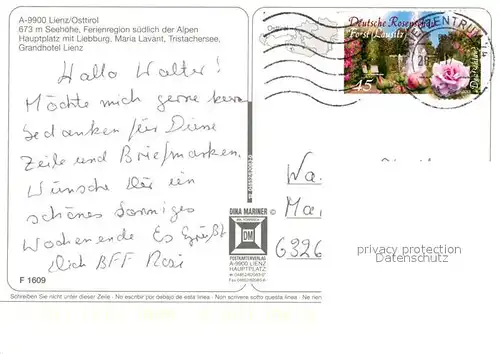 A-9900 Lienz/Osttirol
673 m Seehöhe, Ferienregion südlich der Alpen
Hauptplatz mit Liebburg, Maria Lavant, Tristachersee,
Grandhotel Lienz
Hallo Walter!
Möchte mich gerne
bedanken für Diene
Zeile und Briefmarken.
Wünsche Dir ein
schönes Sonniges
Wochenende Es Grüßt
Dich BFF Rosi
F 1609
Schreiben Sie nicht unter dieser Zeile - No escribir por debajo de esta linea - Non scrivere sotto questa linea -
DIKA MARINER ©
DM
POSTKARTENVERLAG
A-9900 LIENZ
HAUPTPLATZ
Deutsche Rosenschau
Forst (Lausitz)
45
Wa
Ma
6326
privacy protection
oldthing.com